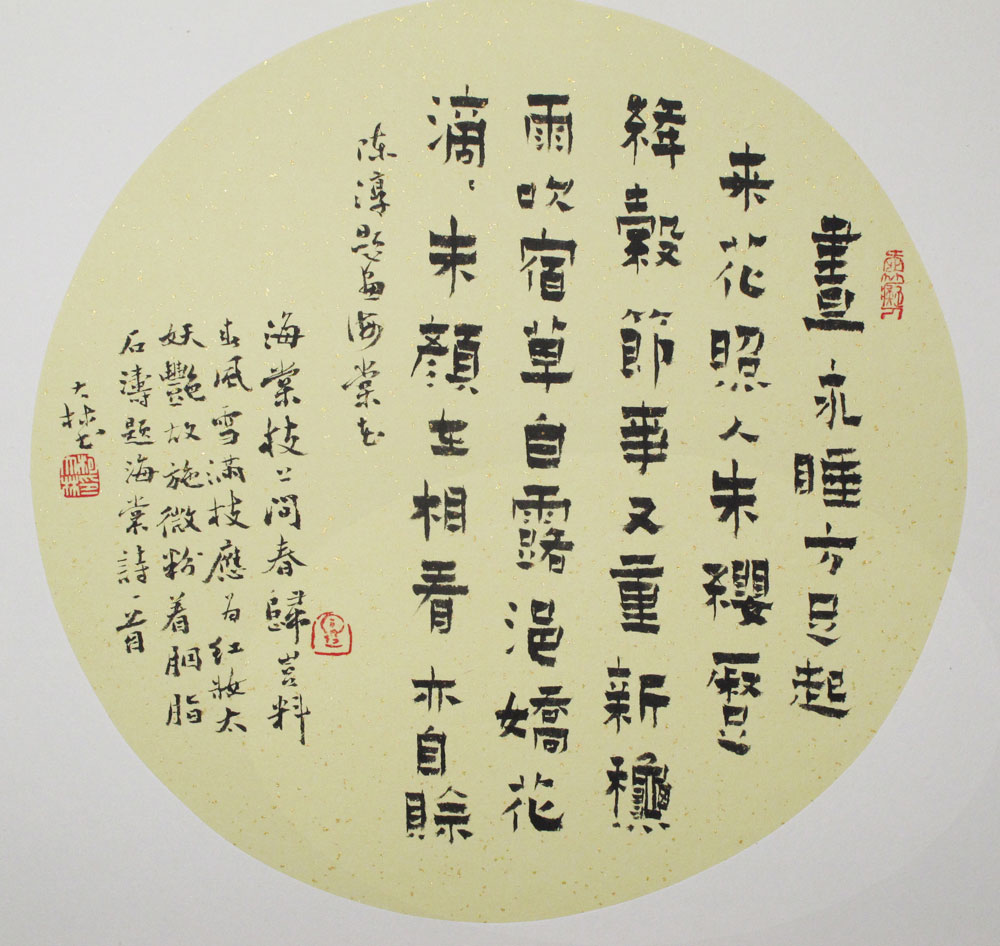 晝永睡方足起
来花照人朱纓壓
絳縠節事又重新穐
雨吹宿草自露浥嬌花
滴滴未顔在相看亦自賒
陳淳題畫海棠花
海棠枝上問春歸豈料
春風雪滿枝應為紅妝太
妖艷故施微粉着胭脂
石濤題海棠詩一首
大林